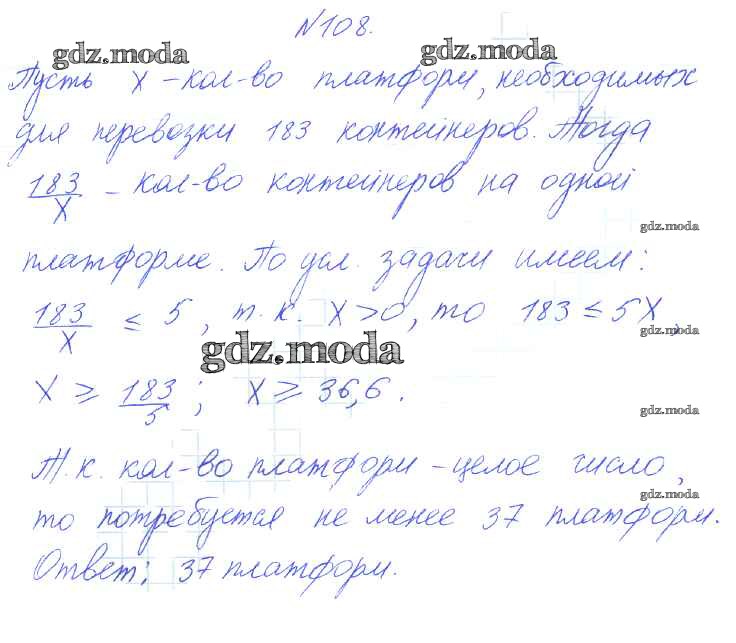 №108.
gdz.moda gdz.moda
Пусть x – кол-во платформ, необходимых
для перевозки 183 контейнеров. Тогда
183/x – кол-во контейнеров на одной
gdz.moda
платформе. По усл. задачи имеем:
183/x ≤ 5, т.к. x>0, то 183 ≤ 5x,
gdz.moda
gdz.moda
x ≥ 183/5; x ≥ 36,6.
gdz.moda
Т.к. кол-во платформ – целое число,
gdz.moda
то потребуется не менее 37 платформ.
Ответ: 37 платформ.